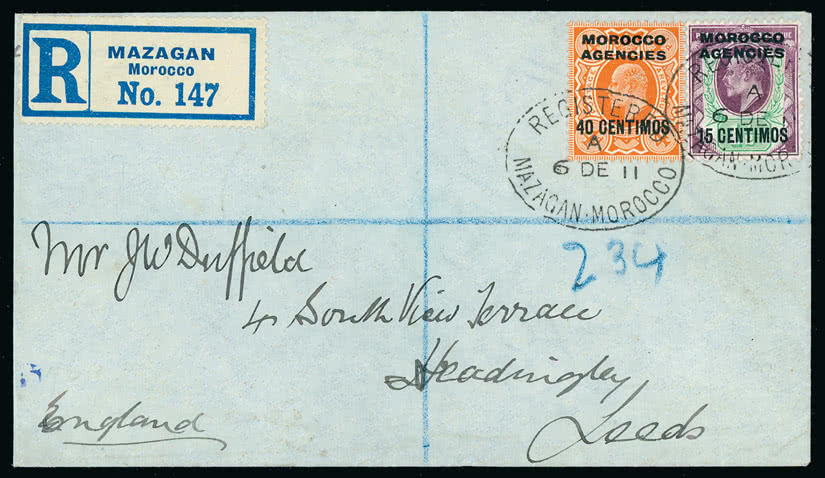 R
MAZAGAN
Morocco
No. 147
MOROCCO
AGENCIES
40 CENTIMOS
MOROCCO
AGENCIES
15 CENTIMOS
REGISTERED
A
6 DE 11
MAZAGAN·MOROCCO
A
6 DE
MAZAGAN·MOR
234
Mr JW Duffield
4 South View Terrace
Headingley
Leeds
England